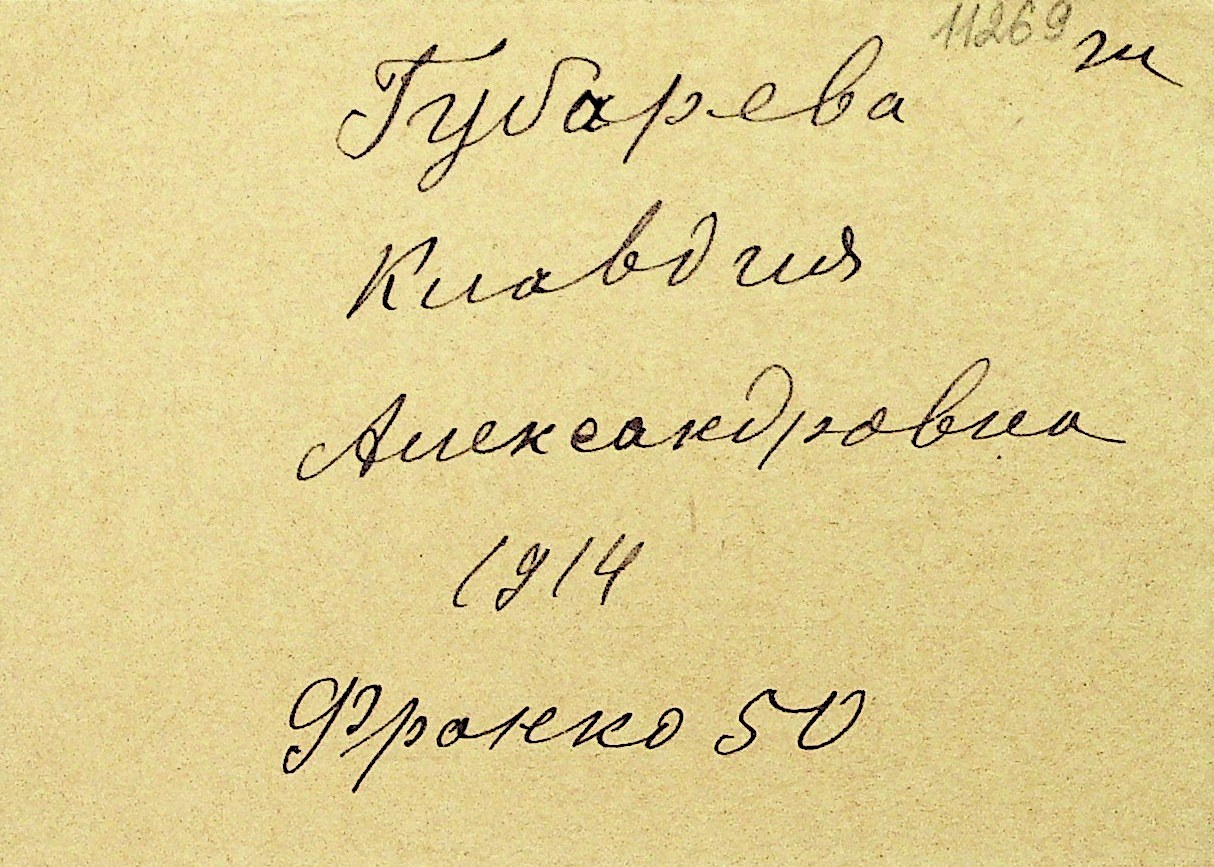 11269 ж
Губарева
Клавдия
Александровна
1914
Франко 50